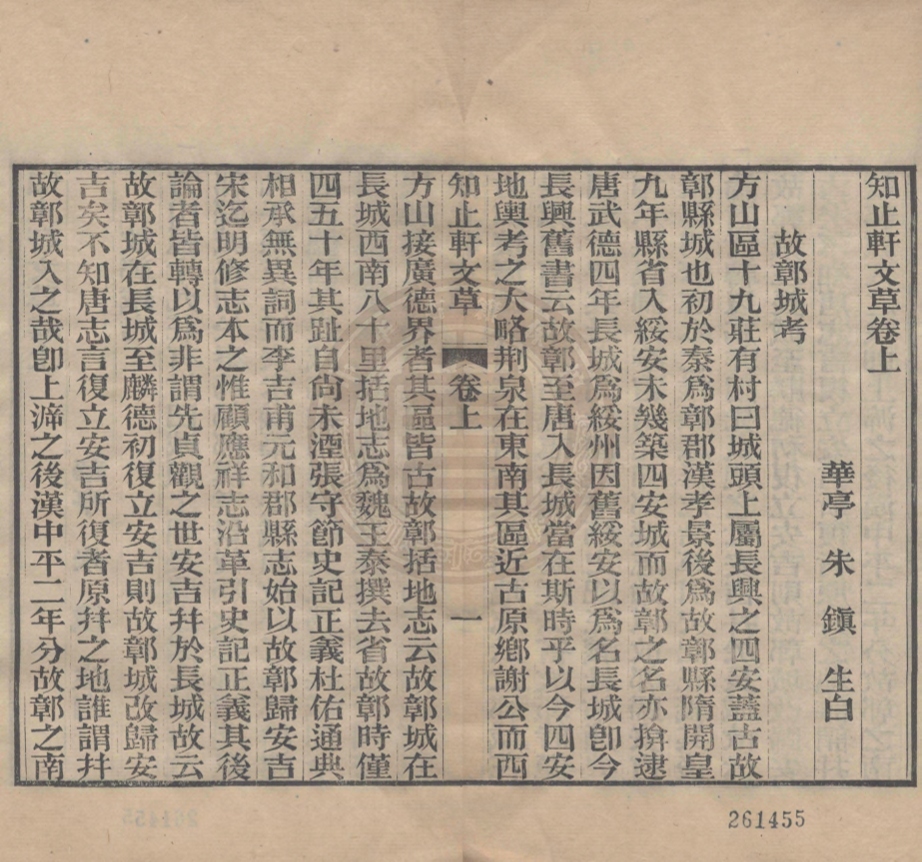 知止軒文草卷上
華亭 朱鎭 生白
故鄣城考
方山區十九莊有村曰城頭上屬長興之四安蓋古故
鄣縣城也初於秦爲鄣郡漢孝景後爲故鄣縣隋開皇
九年縣省入綏安未幾築四安城而故鄣之名亦揜逮
唐武德四年長城爲綏州因舊綏安以爲名長城卽今
長興舊書云故鄣至唐入長城當在斯時乎以今四安
地輿考之大略荆泉在東南其區近古原鄉謝公而西
知止軒文草 卷上 一
方山接廣德界者其區皆古故鄣括地志云故鄣城在
長城西南八十里括地志爲魏王泰撰去省故鄣時僅
四五十年其趾自尙未湮張守節史記正義杜佑通典
相承無異詞而李吉甫元和郡縣志始以故鄣歸安吉
宋迄明修志本之惟顧應祥志沿革引史記正義其後
論者皆轉以爲非謂先貞觀之世安吉幷於長城故云
故鄣城在長城至麟德初復立安吉則故鄣城改歸安
吉矣不知唐志言復立安吉所復者原幷之地誰謂幷
故鄣城入之哉卽上渧之後漢中平二年分故鄣之南
261455